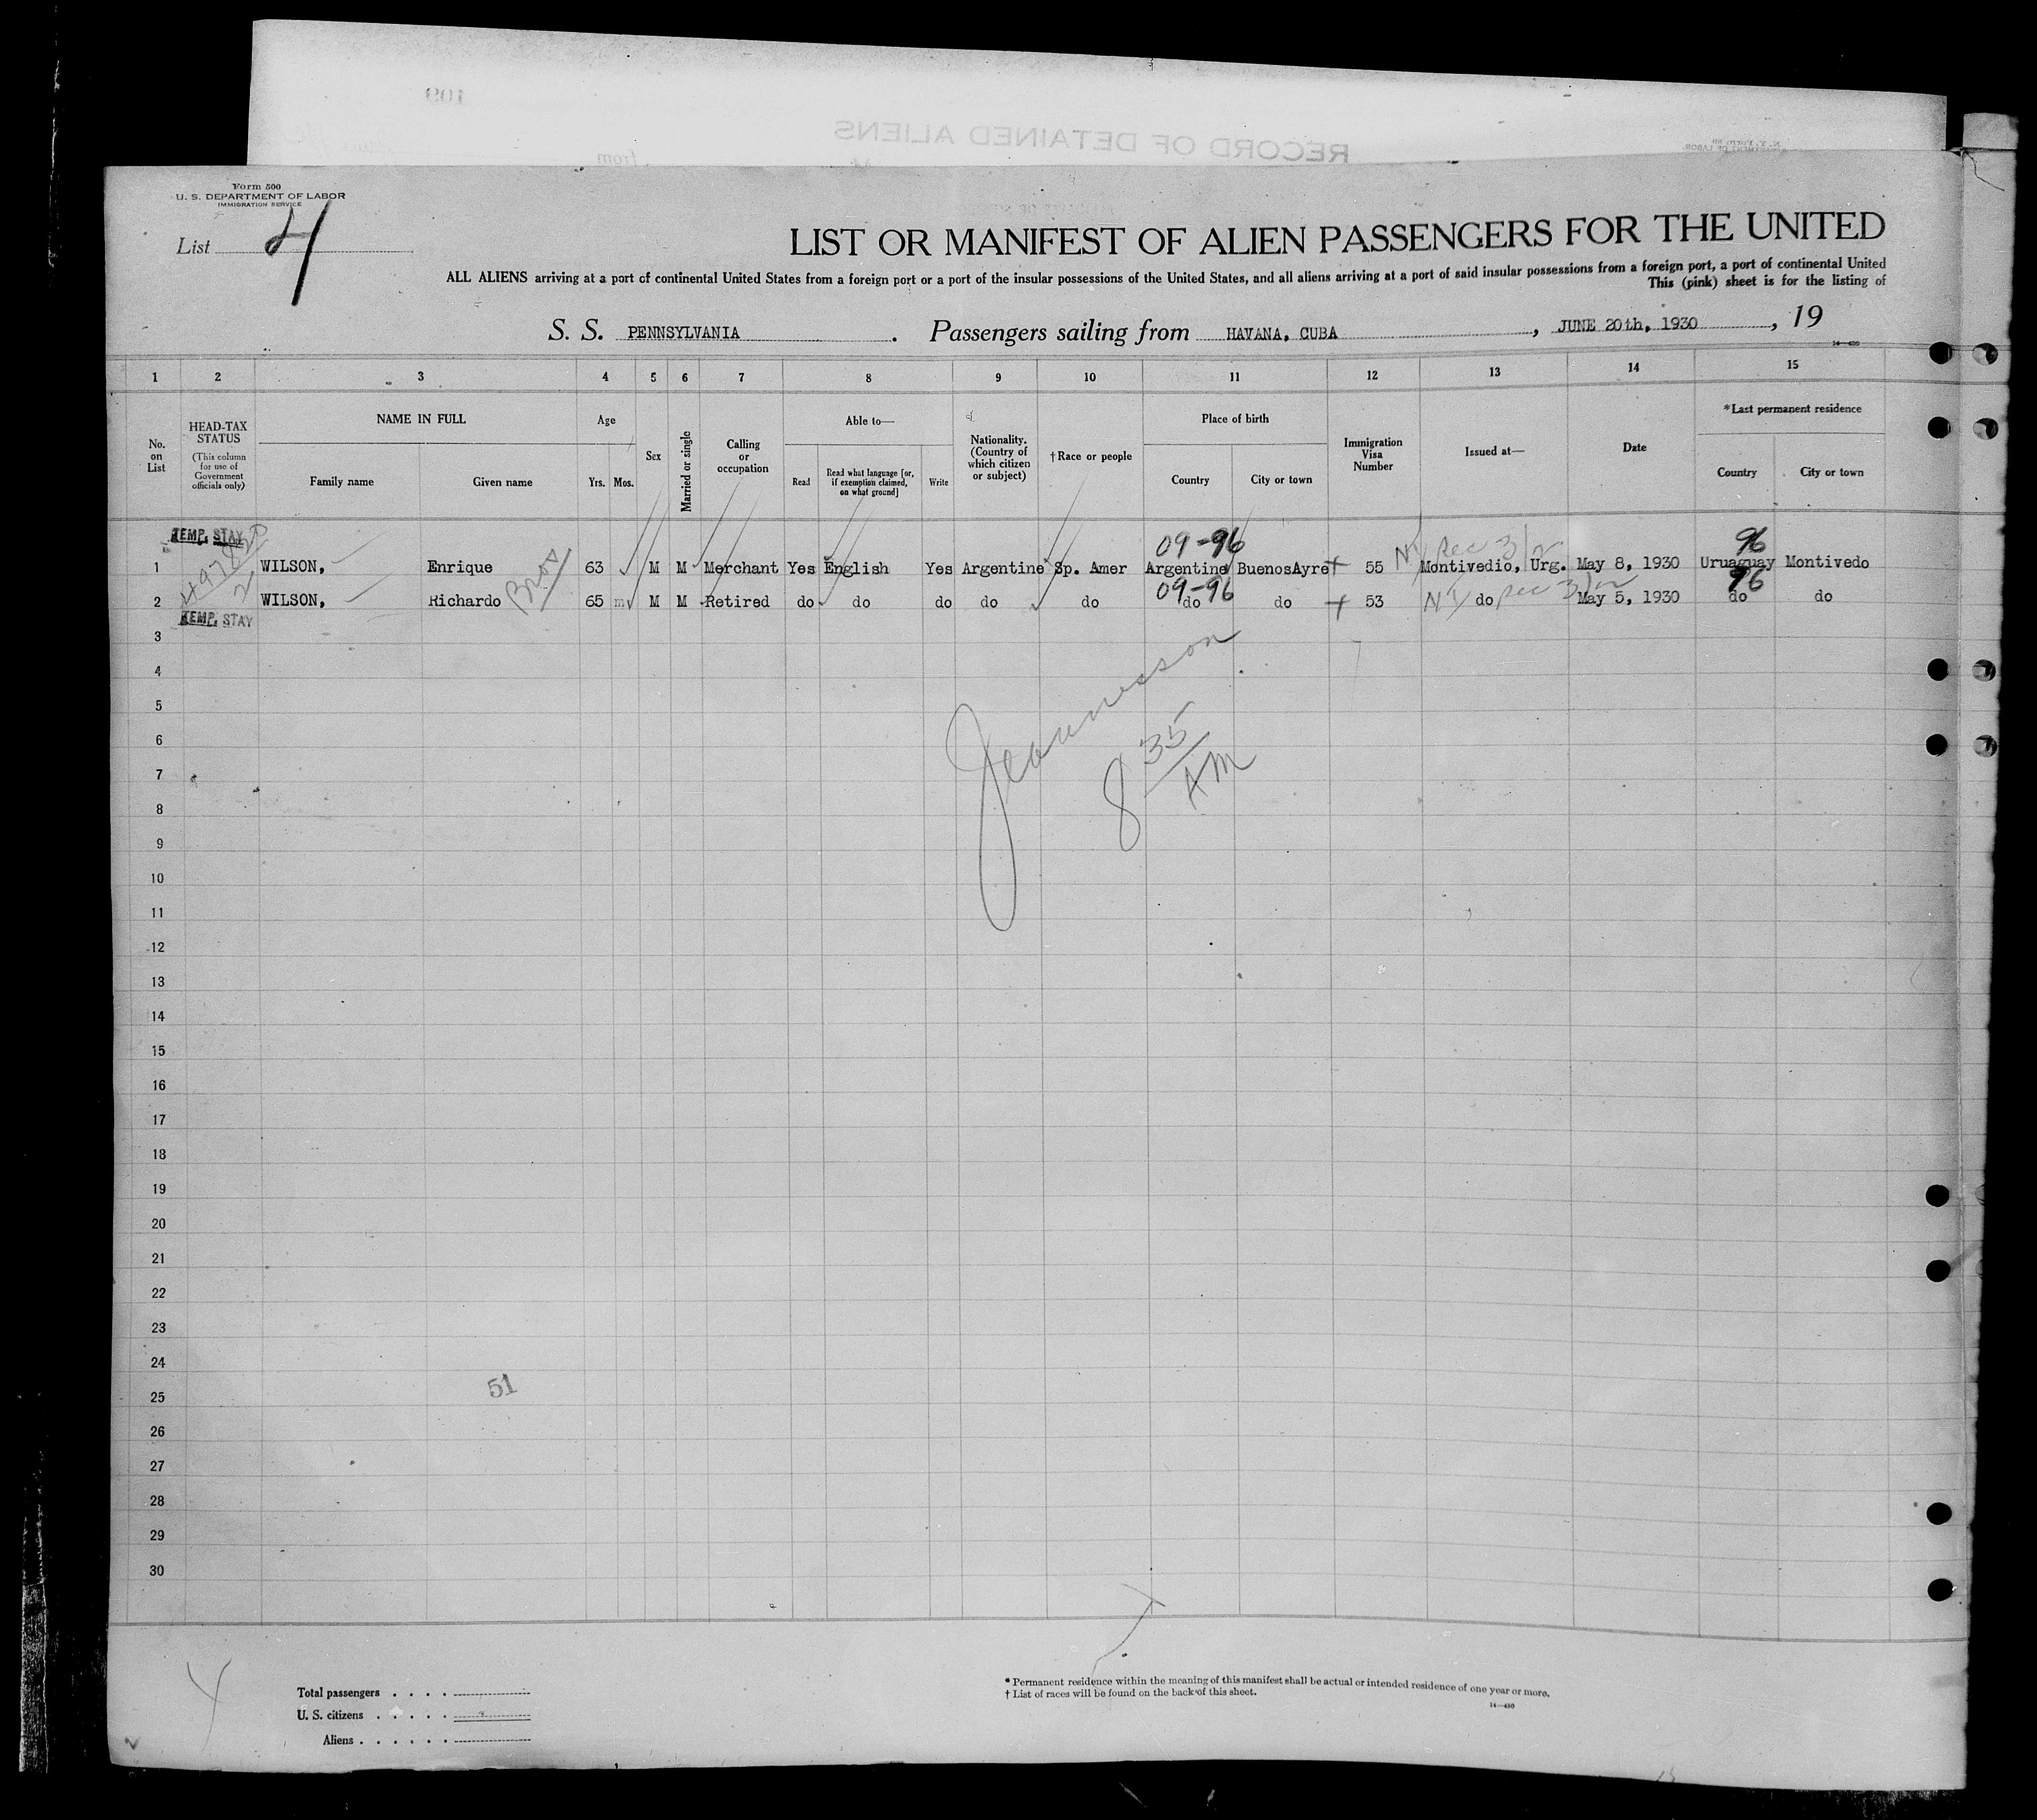 109
RECORD OF DETAINED ALIENS
from
Form 500
U. S. DEPARTMENT OF LABOR
IMMIGRATION SERVICE
List 4
LIST OR MANIFEST OF ALIEN PASSENGERS FOR THE UNITED
ALL ALIENS arriving at a port of continental United States from a foreign port or a port of the insular possessions of the United States, and all aliens arriving at a port of said insular possessions from a foreign port, a port of continental United
This (pink) sheet is for the listing of
S. S. PENNSYLVANIA. Passengers sailing from HAVANA, CUBA, JUNE 20th, 1930, 19
14—430
1 2 3 4 5 6 7 8 9 10 11 12 13 14 15
No. on List
HEAD-TAX STATUS
(This column for use of Government officials only)
NAME IN FULL
Family name Given name
Age
Yrs. Mos.
Sex
Married or single
Calling or occupation
Able to—
Read
Read what language [or, if exemption claimed, on what ground]
Write
Nationality. (Country of which citizen or subject)
†Race or people
Place of birth
Country City or town
Immigration Visa Number
Issued at—
Date
*Last permanent residence
Country City or town
TEMP. STAY
09-96 96
1 WILSON, Enrique 63 M M Merchant Yes English Yes Argentine Sp. Amer Argentine BuenosAyre 55 Montivedio, Urg. May 8, 1930 Uruaguay Montivedo
Bros
09-96 96
2 WILSON, Richardo 65 M M Retired do do do do do do do 53 NY do May 5, 1930 do do
TEMP. STAY
3
4
5
6
7
8
9
10
11
12
13
14
15
16
17
18
19
20
21
22
23
24
25
26
27
28
29
30
8 35 AM
51
Total passengers . . . .
U. S. citizens . . . . .
Aliens . . . . . .
* Permanent residence within the meaning of this manifest shall be actual or intended residence of one year or more.
† List of races will be found on the back of this sheet.
14—430